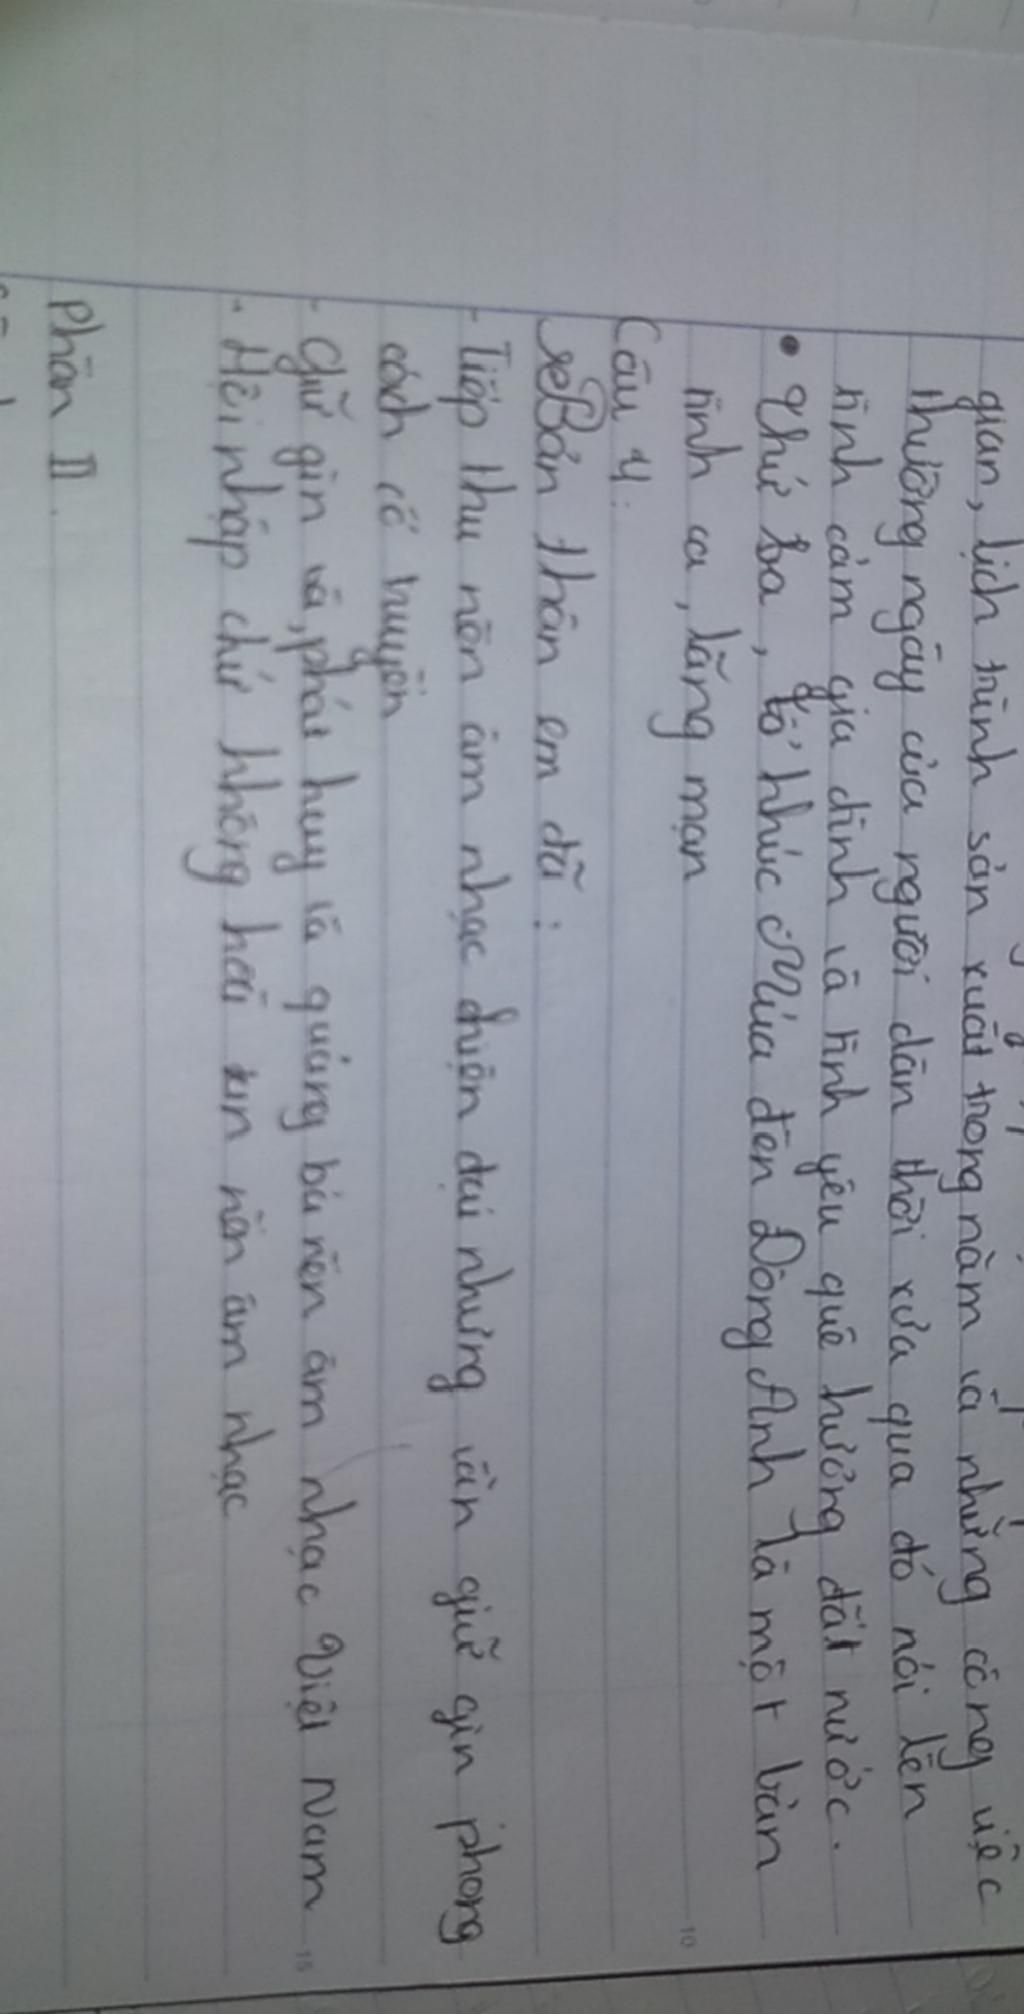 quan, lịch trình sản xuất trong năm và những công việc
thường ngày của người dân thời xưa qua đó nói lên
tình cảm gia đình và tình yêu quê hương đất nước.
• Thứ ba, tổ khúc Múa đèn Đông Anh là một bản
tình ca, lãng mạn
Câu 4:
Bản thân em đã:
- Tiếp thu nền âm nhạc hiện đại nhưng vẫn giữ gìn phong
cách cổ truyền
- Giữ gìn và, phát huy và quảng bá nền âm nhạc Việt Nam
- Hội nhập chứ không hoà tan nền âm nhạc
Phần II.
10
15